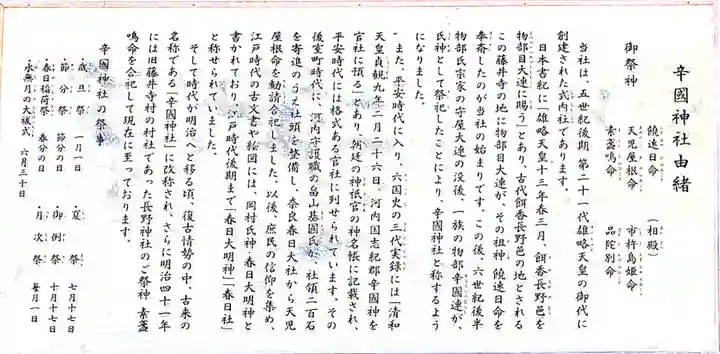 辛國神社由緒
御祭神
饒速日命
天児屋根命
素盞鳴命
(相殿)
市杵島姫命
品陀別命
当社は、五世紀後期 第二十一代雄略天皇の御代に
創建された式内社であります。
日本書紀に「雄略天皇十三年春三月、餌香長野邑を
物部目大連に賜う」とあり、古代餌香長野邑の地とされる
この藤井寺の地に物部目大連が、その祖神 饒速日命を
奉斎したのが当社の始まりです。この後、六世紀後半
物部氏宗家の守屋大連の没後、一族の物部辛國連が、
氏神として祭祀したことにより、辛國神社と称するよう
になりました。
また、平安時代に入り、六国史の三代実録には「清和
天皇貞観九年二月二十六日、河内国志紀郡辛國神を
官社に預る」とあり、朝廷の神祇官の神名帳に記載され、
平安時代には格式ある官社に列せられています。その
後室町時代に、河内守護職の畠山基國氏が、社領二百石
を寄進のうえ社頭を整備し、奈良春日大社から天児
屋根命を勧請合祀しました。以後、庶民の信仰を集め、
江戸時代の古文書や絵図には、岡村氏神・春日大明神と
書かれており、江戸時代後期まで「春日大明神」「春日社」
と称せられていました。
そして時代が明治へと移る頃、復古情勢の中、古来の
名称である「辛國神社」に改称され、さらに明治四十一年
には旧藤井寺村の村社であった長野神社のご祭神 素盞
鳴命を合祀して現在に至っております。
辛國神社の祭事
歳旦祭 一月一日
節分祭 節分の日
春日稲荷祭 春分の日
水無月の大祓式 六月三十日
夏祭 七月十七日
御例祭 十月十七日
月次祭 毎月一日